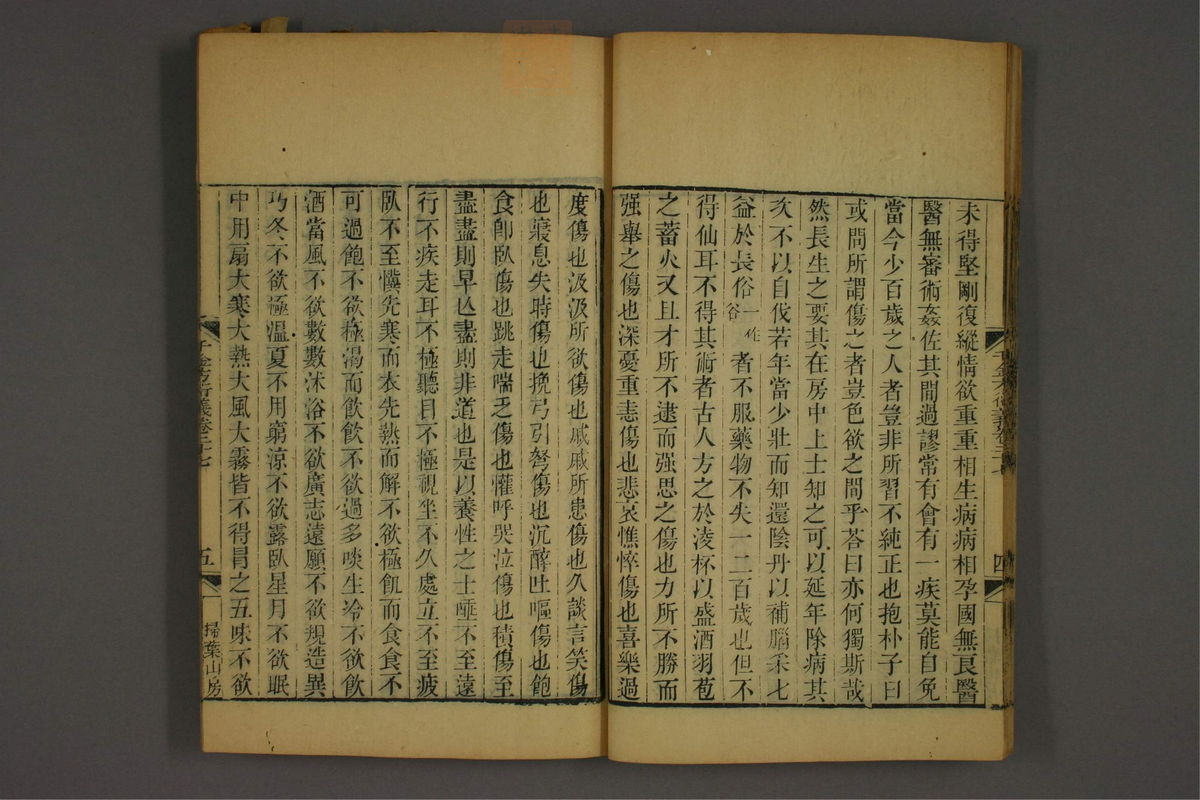 未得堅剛復縱情欲重重相生病病相孕國無良醫
醫無審術姦佐其間過謬常有會有一疾莫能自免
當今少百歲之人者豈非所習不純正也抱朴子曰
或問所謂傷之者豈色欲之間乎荅曰亦何獨斯哉
然長生之要其在房中上士知之可以延年除病其
次不以自伐若年當少壯而知還陰丹以補腦采七
益於長俗一作谷者不服藥物不失一二百歲也但不
得仙耳不得其術者古人方之於淩杯以盛酒羽苞
之蓄火又且才所不逮而强思之傷也力所不勝而
强舉之傷也深憂重恚傷也悲哀憔悴傷也喜樂過
千金方衍義卷二十七
四
度傷也汲汲所欲傷也戚戚所患傷也久談言笑傷
也寢息失時傷也挽弓引弩傷也沉醉吐嘔傷也飽
食卽臥傷也跳走喘乏傷也懽呼哭泣傷也積傷至
盡盡則早亾盡則非道也是以養性之士唾不至遠
行不疾走耳不極聽目不極視坐不久處立不至疲
臥不至懻先寒而衣先熱而解不欲極飢而食食不
可過飽不欲極渴而飲飲不欲過多啖生冷不欲飲
酒當風不欲數數沐浴不欲廣志遠願不欲規造異
巧冬不欲極溫夏不用窮涼不欲露臥星月不欲眠
中用扇大寒大熱大風大霧皆不得冒之五味不欲
千金方衍義卷二十七
五
掃葉山房